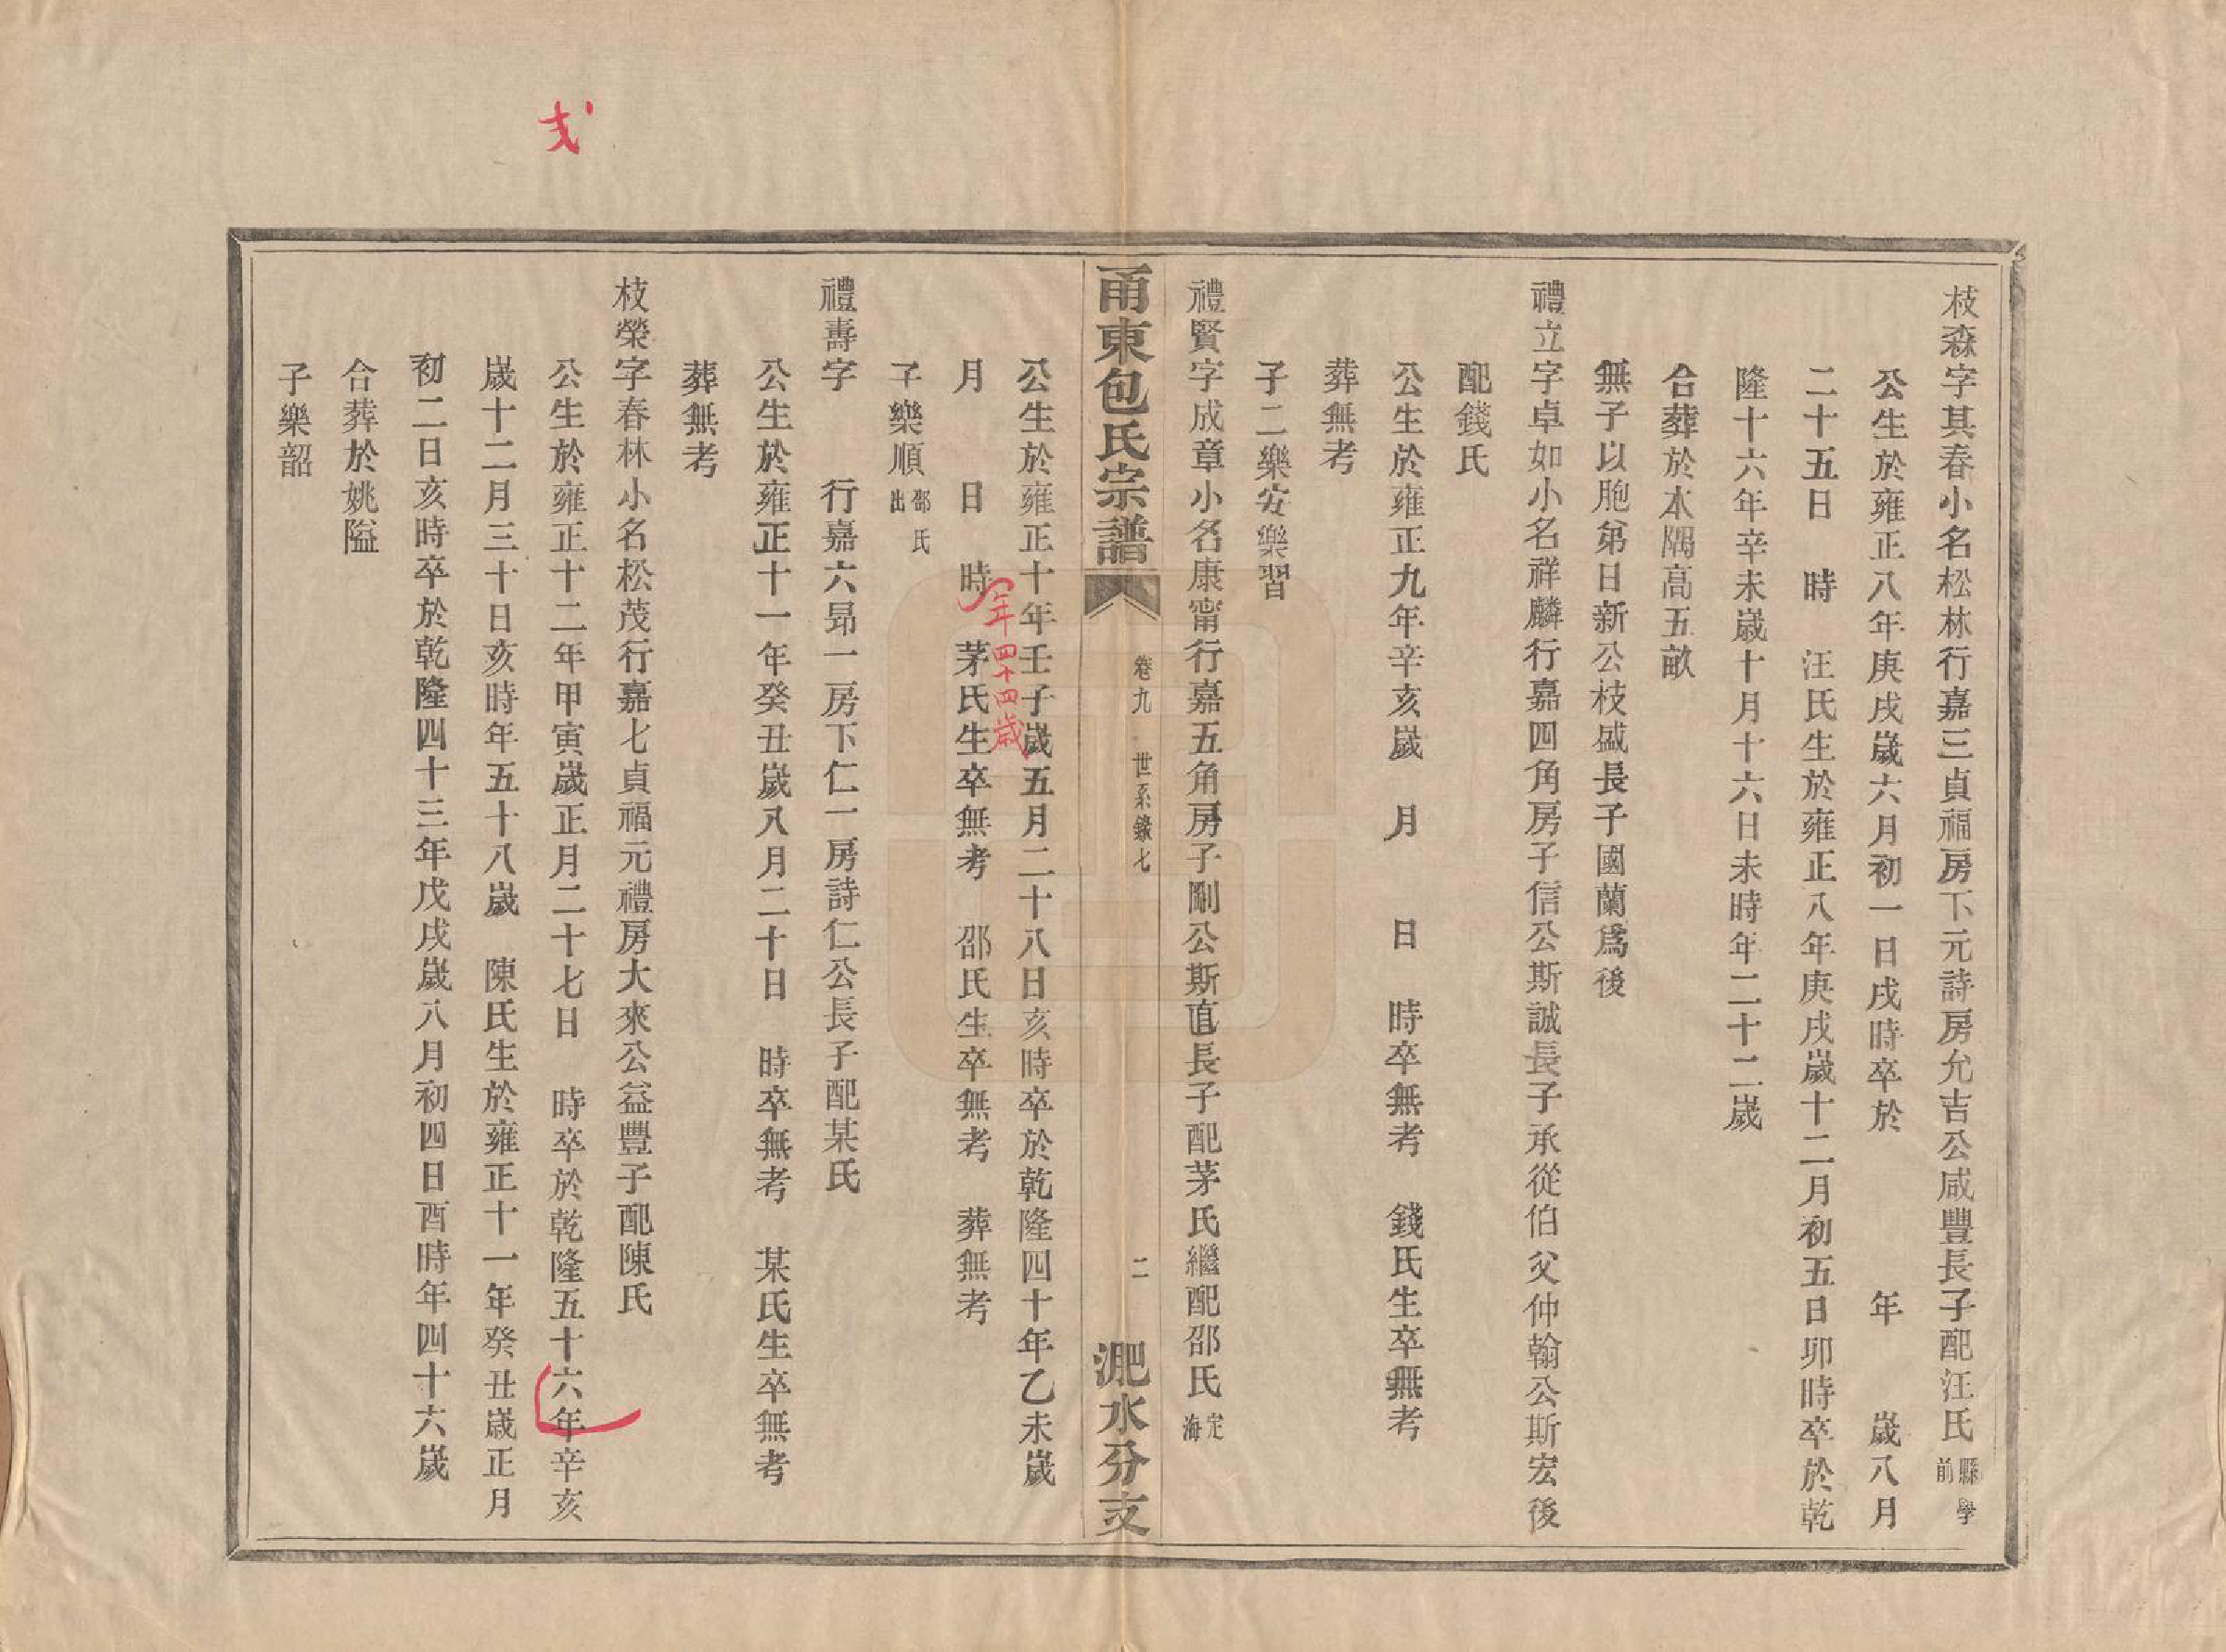 枝森字其春小名松林行嘉三貞福房下元詩房允吉公咸豐長子配汪氏縣學前
公生於雍正八年庚戌歲六月初一日戌時卒於 年 歲八月
二十五日 時 汪氏生於雍正八年庚戌歲十二月初五日卯時卒於乾
隆十六年辛未歲十月十六日未時年二十二歲
合葬於本隅高五畝
無子以胞弟日新公枝盛長子國蘭爲後
禮立字卓如小名祥麟行嘉四角房子信公斯誠長子承從伯父仲翰公斯宏後
配錢氏
公生於雍正九年辛亥歲 月 日 時卒無考 錢氏生卒無考
葬無考
子二樂安樂習
禮賢字成章小名康甯行嘉五角房子剛公斯直長子配茅氏繼配邵氏定海
甬東包氏宗譜 卷九 世系錄七 二 淝水分支
公生於雍正十年壬子歲五月二十八日亥時卒於乾隆四十年乙未歲
年四十四歲
月 日 時 茅氏生卒無考 邵氏生卒無考 葬無考
子樂順邵氏出
禮壽字 行嘉六昴一房下仁一房詩仁公長子配某氏
公生於雍正十一年癸丑歲八月二十日 時卒無考 某氏生卒無考
葬無考
枝榮字春林小名松茂行嘉七貞福元禮房大來公益豐子配陳氏
公生於雍正十二年甲寅歲正月二十七日 時卒於乾隆五十六年辛亥
歲十二月三十日亥時年五十八歲 陳氏生於雍正十一年癸丑歲正月
初二日亥時卒於乾隆四十三年戊戌歲八月初四日酉時年四十六歲
合葬於姚隘
子樂韶